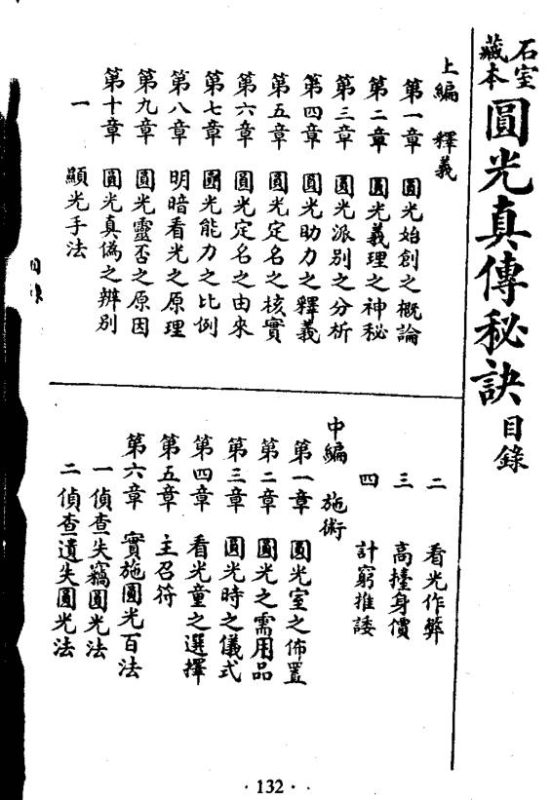 石室藏本圓光真傳秘訣目錄
上編　釋義
第一章　圓光始創之概論
第二章　圓光義理之神秘
第三章　圓光派別之分析
第四章　圓光助力之釋義
第五章　圓光定名之核實
第六章　圓光定名之由來
第七章　圓光能力之比例
第八章　明暗看光之原理
第九章　圓光靈否之原因
第十章　圓光真偽之辨別
一　顯光手法
二　看光作弊
三　高擡身價
四　計窮推諉
中編　施術
第一章　圓光室之佈置
第二章　圓光之需用品
第三章　圓光時之儀式
第四章　看光童之選擇
第五章　主召符
第六章　實施圓光百法
一　偵查失竊圓光法
二　偵查遺失圓光法
目錄
·132·